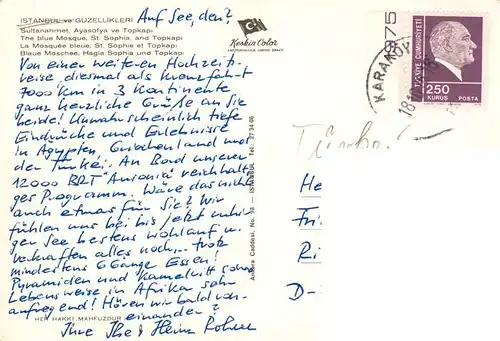 İSTANBUL ve GÜZELLİKLERİ
Sultanahmet, Ayasofya ve Topkapı
The blue Mosque, St. Sophia, and Topkapı
La Mosquée bleue, St. Sophie et Topkapı
Blaue Moschee, Hagia Sophia und Topkapı
Auf See, den?
Keskin Color
Von einer weiteren Hochzeits-
reise diesmal als Kreuzfahrt
7000 km in 3 Kontinente
ganz herzliche Grüße an Sie
beide! Unwahrscheinlich tiefe
Eindrücke und Erlebnisse
in Ägypten, Griechenland und
der Türkei. An Bord unserer
12000 BRT "Ausonia" reichhalti-
ges Programm. Wäre das nicht
auch etwas für Sie? Wir
fühlen uns bei bis jetzt ruhi-
ger See bestens wohlauf u.
verkraften alles noch, trotz
mindestens 6 Gänge Essen!
Pyramiden und Kamelritt sowie
Lebensweise in Afrika sehr
aufregend! Hören wir bald von-
einander?
HER HAKKI MAHFUZDUR
Ihre Ilse & Heinz
Ankara Caddesi, No. 98 - İSTANBUL Tel. 27 34 06
975
KARAKÖY
18
TÜRKİYE CUMHURİYETİ
250
KURUŞ POSTA
Türkei
He
Fri
Ri
D-